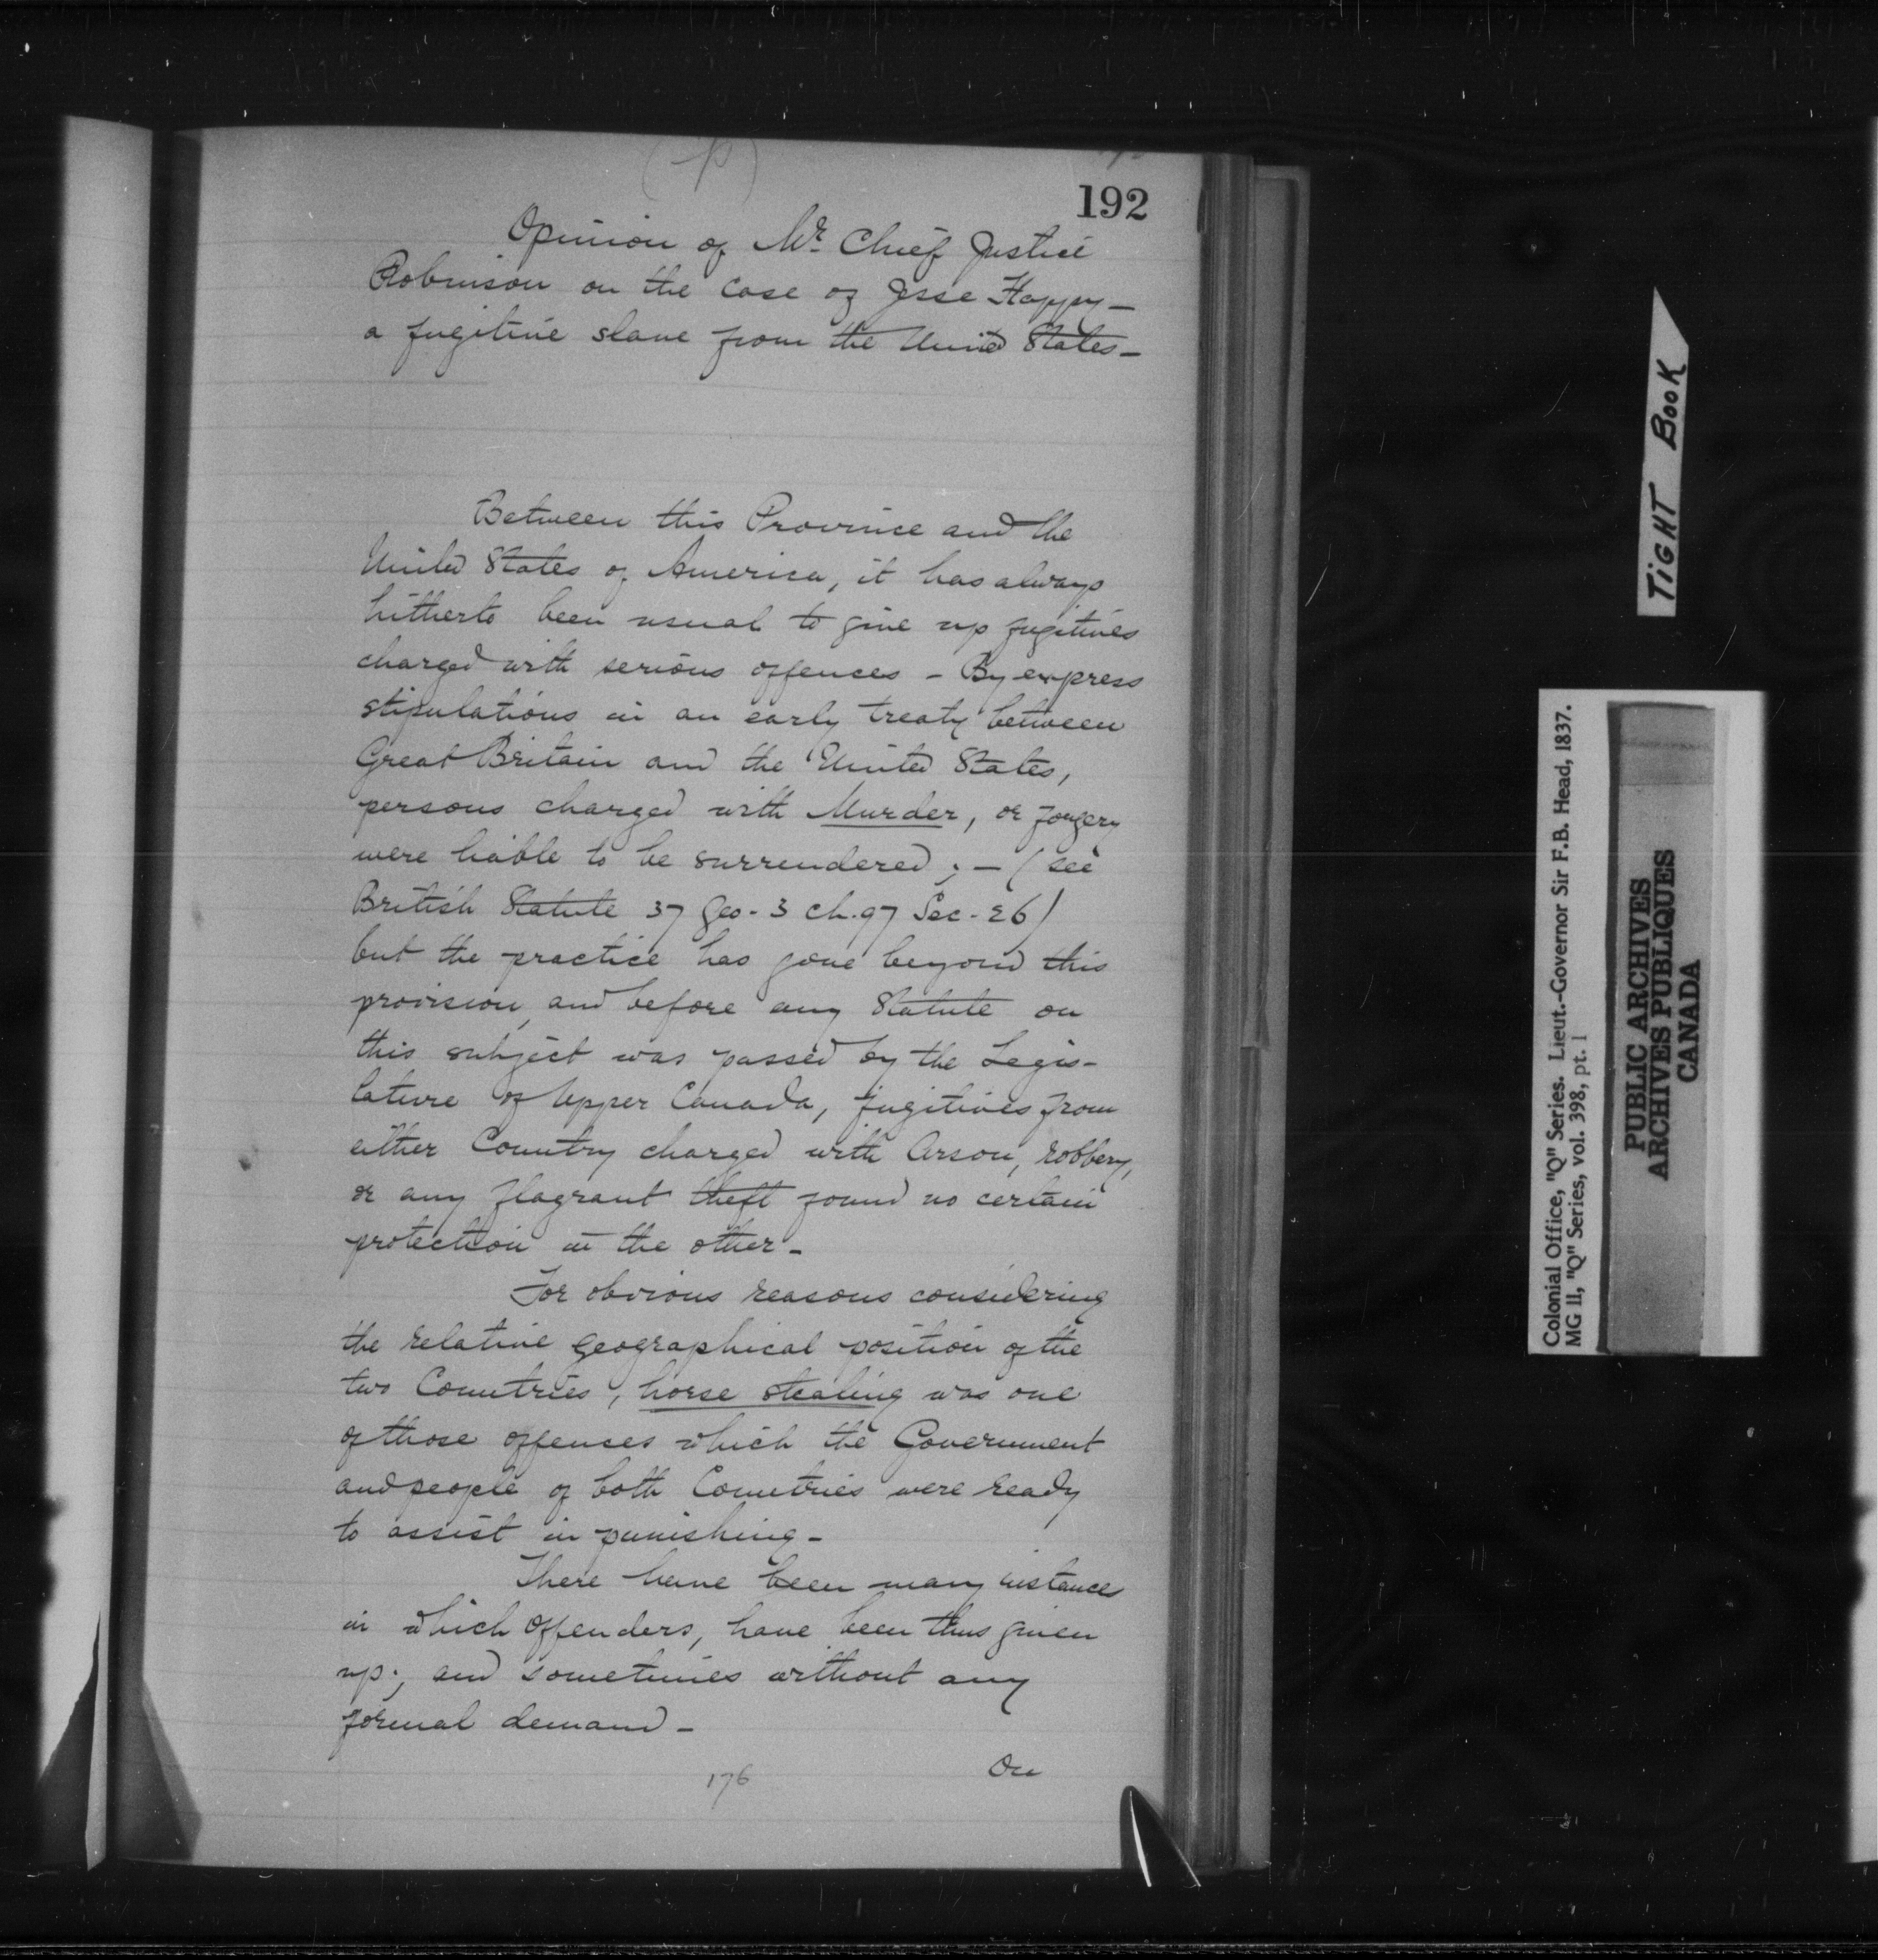 192
Opinion of Mr. Chief Justice
Robinson on the case of Jesse Happy -
a fugitive slave from the United States -
Between this Province and the
United States of America, it has always
hitherto been usual to give up fugitives
charged with serious offences - By express
stipulations in an early treaty between
Great Britain and the United States,
persons charged with Murder, or forgery
were liable to be surrendered; - (see
British Statute 37 Geo - 3 ch. 97 Sec - 26)
but the practice has gone beyond this
provision, and before any Statute on
this subject was passed by the Legis-
lature of Upper Canada, fugitives from
either Country charged with Arson, robbery,
or any flagrant theft found no certain
protection in the other -
For obvious reasons considering
the relative geographical position of the
two Countries, horse stealing was one
of those offenses which the Government
and people of both Countries were ready
to assist in punishing -
There have been many instances
in which offenders, have been thus given
up; and sometimes without any
formal demand -
176
On
TIGHT BOOK
Colonial Office, "Q" Series. Lieut.-Governor Sir F.B. Head, 1837.
MG 11, "Q" Series, vol. 398, pt. 1
PUBLIC ARCHIVES
ARCHIVES PUBLIQUES
CANADA